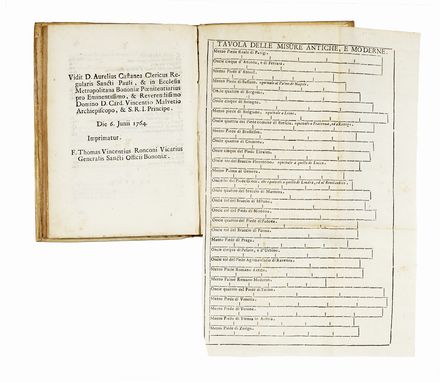 Vidit D. Aurelius Castanea Clericus Re-
gularis Sancti Pauli, & in Ecclesia
Metropolitana Bononiæ Pœnitentiarius
pro Eminentissimo, & Reverendissimo
Domino D. Card. Vincentio Malvetio
Archiepiscopo, & S. R. I. Principe.
Die 6. Junii 1764.
Imprimatur.
F. Thomas Vincentius Ronconi Vicarius
Generalis Sancti Officii Bononiæ.
TAVOLA DELLE MISURE ANTICHE, E MODERNE.
Mezzo Piede Reale di Parigi.
Once cinque d'Ancona, e di Ferrara.
Mezzo Piede d'
Mezzo Piede di
Once quattro di Bergamo.
Once cinque di Bologna.
Mezzo Piede di Bolzano,
Once quattro del Piede
Mezzo Piede di
Once quattro di Cesena.
Once cinque del Piede
Once sei del Braccio Fiorentino,
Mezzo Palmo di Genova.
Mezzo
Once sei del Braccio di Mantova.
Once sei del Braccio di Milano.
Once sei del Piede di Modena.
Once quattro del Piede di Padova.
Once sei del Braccio di Parma.
Mezzo Piede di Praga.
Once cinque di Pesaro, e d'Urbino.
Once sei del Piede Agrimensorio di Ravenna.
Mezzo Piede Romano Antico.
Mezzo Palmo Romano Moderno.
Once quattro del Piede di Torino.
Mezzo Piede di Venezia.
Mezzo Piede di Verona.
Mezzo Piede di Vienna in Austria.
Mezzo Piede di Zurigo.